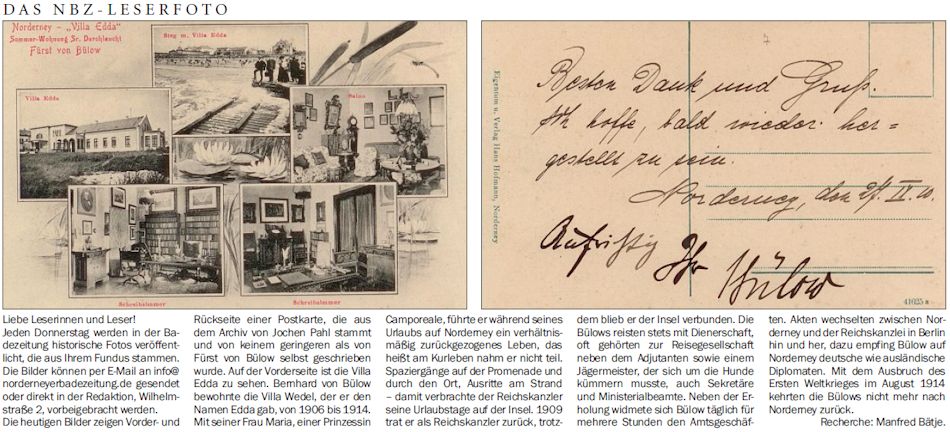 DAS NBZ-LESERFOTO
Norderney - „Villa Edda“
Sommer-Wohnung Sr. Durchlaucht
Fürst von Bülow
Steg m. Villa Edda
Villa Edda
Salon
Schreibzimmer
Schreibzimmer
Eigentum u. Verlag Hans Hofmann, Norderney
Besten Dank und Gruß.
Ich hoffe, bald wieder her=
gestellt zu sein.
Norderney, den
Aufrichtig
Ihr Bülow
41625
Liebe Leserinnen und Leser!
Jeden Donnerstag werden in der Ba-
dezeitung historische Fotos veröffent-
licht, die aus Ihrem Fundus stammen.
Die Bilder können per E-Mail an info@
norderneyerbadezeitung.de gesendet
oder direkt in der Redaktion, Wilhelm-
straße 2, vorbeigebracht werden.
Die heutigen Bilder zeigen Vorder- und
Rückseite einer Postkarte, die aus
dem Archiv von Jochen Pahl stammt
und von keinem geringeren als von
Fürst von Bülow selbst geschrieben
wurde. Auf der Vorderseite ist die Villa
Edda zu sehen. Bernhard von Bülow
bewohnte die Villa Wedel, der er den
Namen Edda gab, von 1906 bis 1914.
Mit seiner Frau Maria, einer Prinzessin
Camporeale, führte er während seines
Urlaubs auf Norderney ein verhältnis-
mäßig zurückgezogenes Leben, das
heißt am Kurleben nahm er nicht teil.
Spaziergänge auf der Promenade und
durch den Ort, Ausritte am Strand
– damit verbrachte der Reichskanzler
seine Urlaubstage auf der Insel. 1909
trat er als Reichskanzler zurück, trotz-
dem blieb er der Insel verbunden. Die
Bülows reisten stets mit Dienerschaft,
oft gehörten zur Reisegesellschaft
neben dem Adjutanten sowie einem
Jägermeister, der sich um die Hunde
kümmern musste, auch Sekretäre
und Ministerialbeamte. Neben der Er-
holung widmete sich Bülow täglich für
mehrere Stunden den Amtsgeschäf-
ten. Akten wechselten zwischen Nor-
derney und der Reichskanzlei in Berlin
hin und her, dazu empfing Bülow auf
Norderney deutsche wie ausländische
Diplomaten. Mit dem Ausbruch des
Ersten Weltkrieges im August 1914
kehrten die Bülows nicht mehr nach
Norderney zurück.
Recherche: Manfred Bätje.